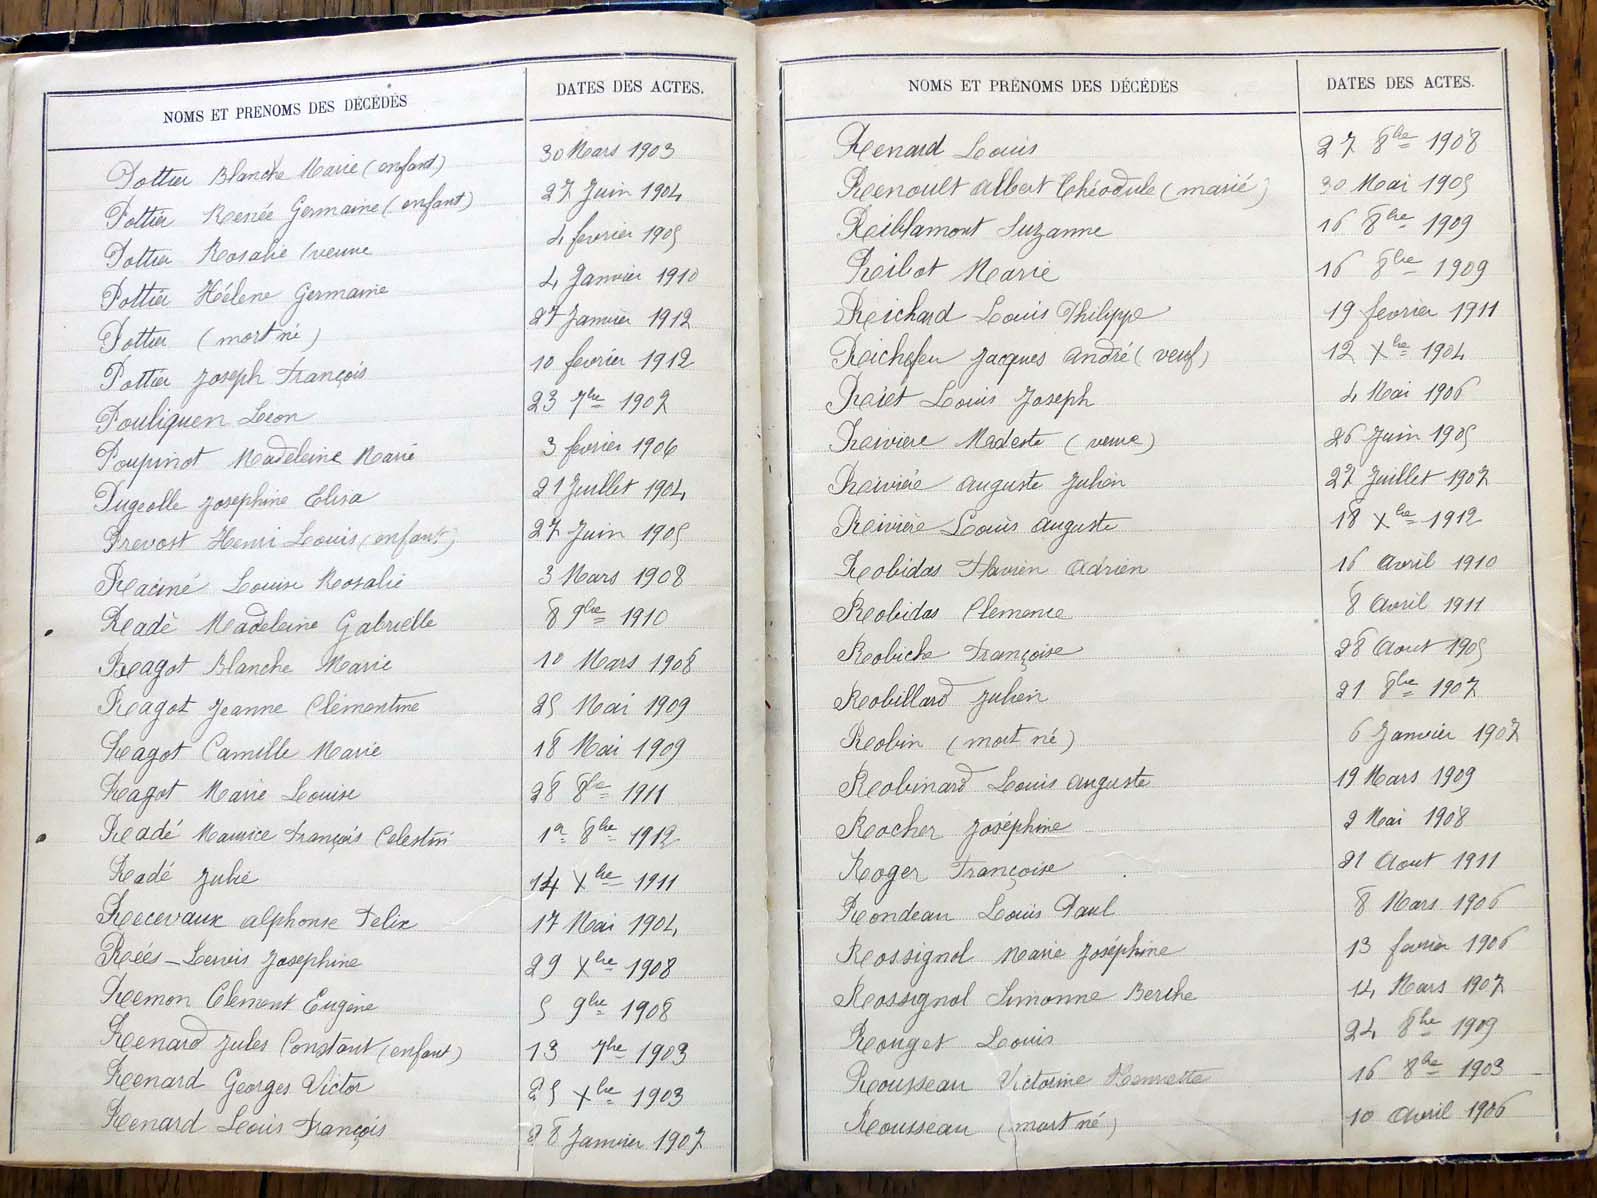 NOMS ET PRENOMS DES DÉCÉDÉS DATES DES ACTES.
Pottier Blanche Marie (enfant) 30 Mars 1903
Pottier Renée Germaine (enfant) 27 Juin 1904
Pottier Rosalie (veuve 4 fevrier 1905
Pottier Hélène Germaine 4 Janvier 1910
Pottier (mort né) 27 Janvier 1912
Pottier Joseph François 10 fevrier 1912
Pouliquen Léon 23 7bre 1907
Poupinot Madeleine Marie 3 fevrier 1906
Pugeolle Josephine Elisa 21 Juillet 1904
Prevost Henri Louis (enfant) 27 Juin 1905
Raciné Louise Rosalie 3 Mars 1908
Radé Madeleine Gabrielle 8 9bre 1910
Ragot Blanche Marie 10 Mars 1908
Ragot Jeanne Clémentine 25 Mai 1909
Ragot Camille Marie 18 Mai 1909
Ragot Marie Louise 28 8bre 1911
Radé Maurice François Celestin 1er 8bre 1912
Radé Julie 14 Xbre 1911
Recevaux alphonse Felix 17 Mai 1904
Reés-Lewis Josephine 29 Xbre 1908
Remon Clement Eugène 5 9bre 1908
Renard Jules Constant (enfant) 13 7bre 1903
Renard Georges Victor 25 Xbre 1903
Renard Louis François 28 Janvier 1907
NOMS ET PRÉNOMS DES DÉCÉDÉS DATES DES ACTES.
Renard Louis 27 8bre 1908
Renoult Albert Théodule (marié) 30 Mai 1905
Riblamont Suzanne 16 8bre 1909
Ribot Marie 16 8bre 1909
Richard Louis Philippe 19 fevrier 1911
Richefeu Jacques André (veuf) 12 Xbre 1904
Riet Louis Joseph 4 Mai 1906
Rivière Modeste (veuve) 26 Juin 1905
Rivière auguste Julien 27 Juillet 1907
Rivière Louis auguste 18 Xbre 1912
Robidas Flavien Adrien 16 Avril 1910
Robidas Clemence 8 Avril 1911
Robiche Françoise 28 Aout 1905
Robillard Julien 21 8bre 1907
Robin (mort né) 6 Janvier 1907
Robinard Louis auguste 19 Mars 1909
Rocher Joséphine 2 Mai 1908
Roger Françoise 21 Aout 1911
Rondeau Louis Paul 8 Mars 1906
Rossignol Marie Joséphine 13 fevrier 1906
Rossignol Simonne Berthe 14 Mars 1907
Rouget Louis 24 8bre 1909
Rousseau Victorine Henriette 16 8bre 1903
Rousseau (mort né) 10 Avril 1906